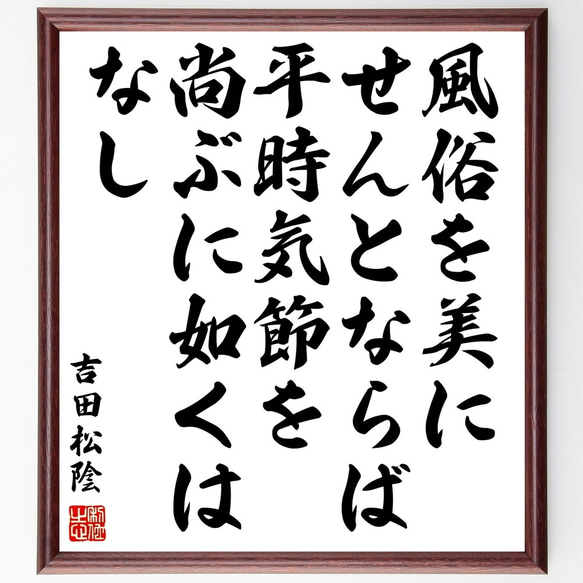 風俗を美に
せんとならば
平時気節を
尚ぶに如くは
なし
吉田松陰